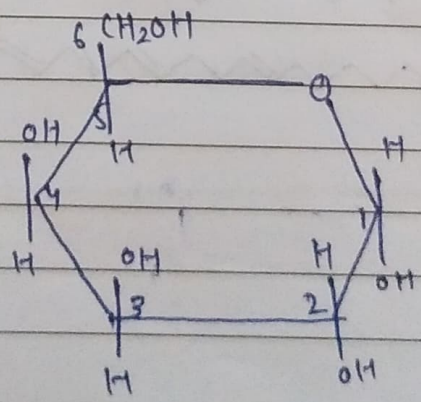 6 CH2OH
O
5
H
OH
H
4
1
H
OH
OH
H
3
2
H
OH